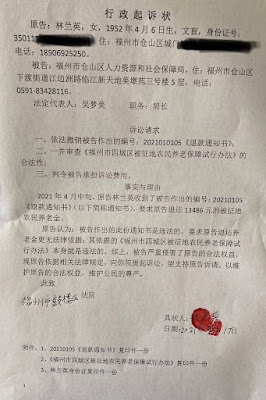 行政起诉状
原告：林兰英，女，1952年4月6日生，文盲，身份证号：
35011 住：福州市仓山区城门
电话：18906925250。
被告：福州市仓山区人力资源和社会保障局，住：福州市仓山区下
渡街道江边洲路临江新天地英堪苑三号楼5层，电话：
0591-83428116。
法定代表人：吴梦英 职务：局长
诉讼请求
一、依法撤销被告作出的编号：20210105《退款通知书》；
二、一并审查《福州市四城区被征地农民养老保障试行办法》的
合法性；
三、判令被告承担诉讼费用。
事实与理由
2021年4月中旬，原告林兰英收到了被告作出的编号：20210105
《退款通知书》（以下简称通知书），要求原告退还13486元的被征地
农民养老金。
原告认为，被告作出的此份通知书是违法的，要求原告退还养
老金更无法律依据，其依据的《福州市四城区被征地农民养老保障试
行办法》本身就是违法的。综上，被告严重侵害了原告的合法权益，
现原告依据相关法律规定，向你院提起诉讼，望支持原告诉请，以维
护原告的合法权益，维护公民的尊严。
此致
福州市鼓楼区法院
具状人：
日期：
附件：1、20210105《退款通知书》复印件一份
2、《福州市四城区被征地农民养老保障试行办法》复印件一份
3、林兰英身份证复印件一份